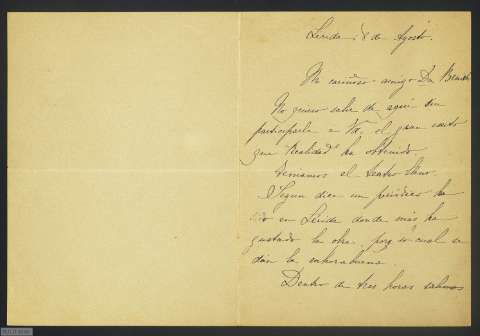 Lérida 8 de Agosto.
Mi cariñoso amigo Don Benito
No quiero salir de aquí sin
participarle a Vd. el gran exito
que "Realidad" ha obtenido.
Teniamos el teatro lleno.
Segun dice un periódico ha
sido en Lérida donde más ha
gustado la obra, por lo cual se
dan la enhorabuena.
Dentro de tres horas salimos